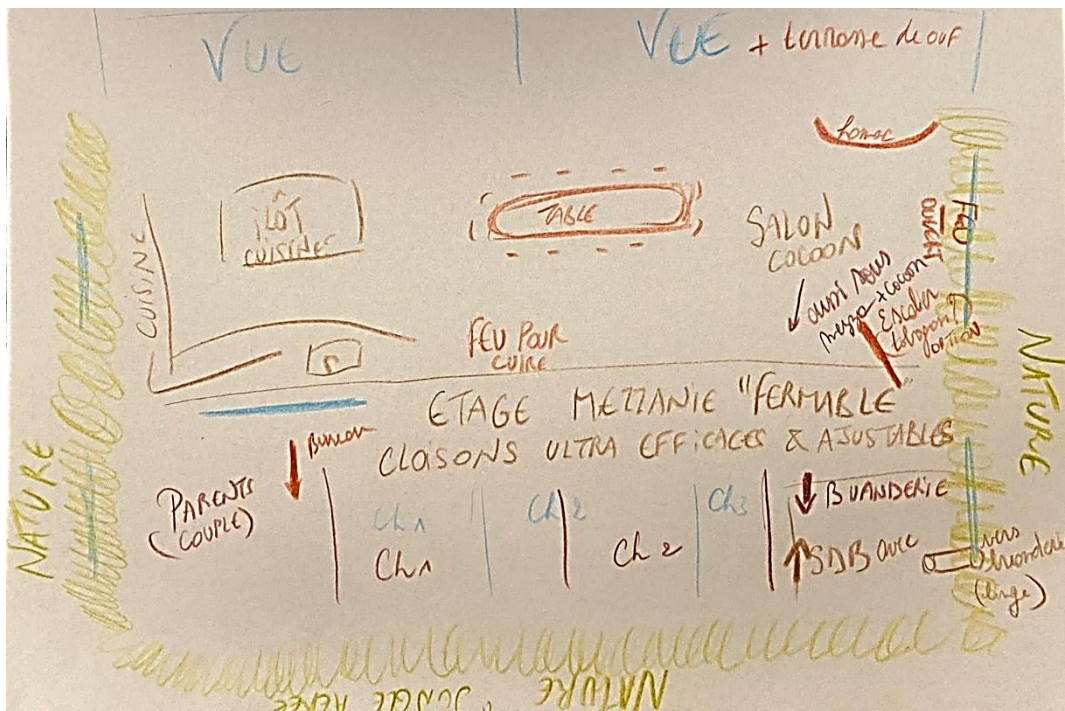 VUE
VUE + terrasse de ouf
hamac
ÎLOT
CUISINE
TABLE
SALON
COCOON
FEU
OUVERT
CUISINE
aussi sous
mezza + cocoon
Escalier
toboggan ?
OPTION
FEU POUR
CUIRE
NATURE
ETAGE MEZZANIE "FERMABLE"
CLOISONS ULTRA EFFICACES & AJUSTABLES
Bureau
PARENTS
(COUPLE)
Ch1
Ch2
Ch3
BUANDERIE
Ch1
Ch2
SDB avec
vers
buanderie
(linge)
NATURE
NATURE